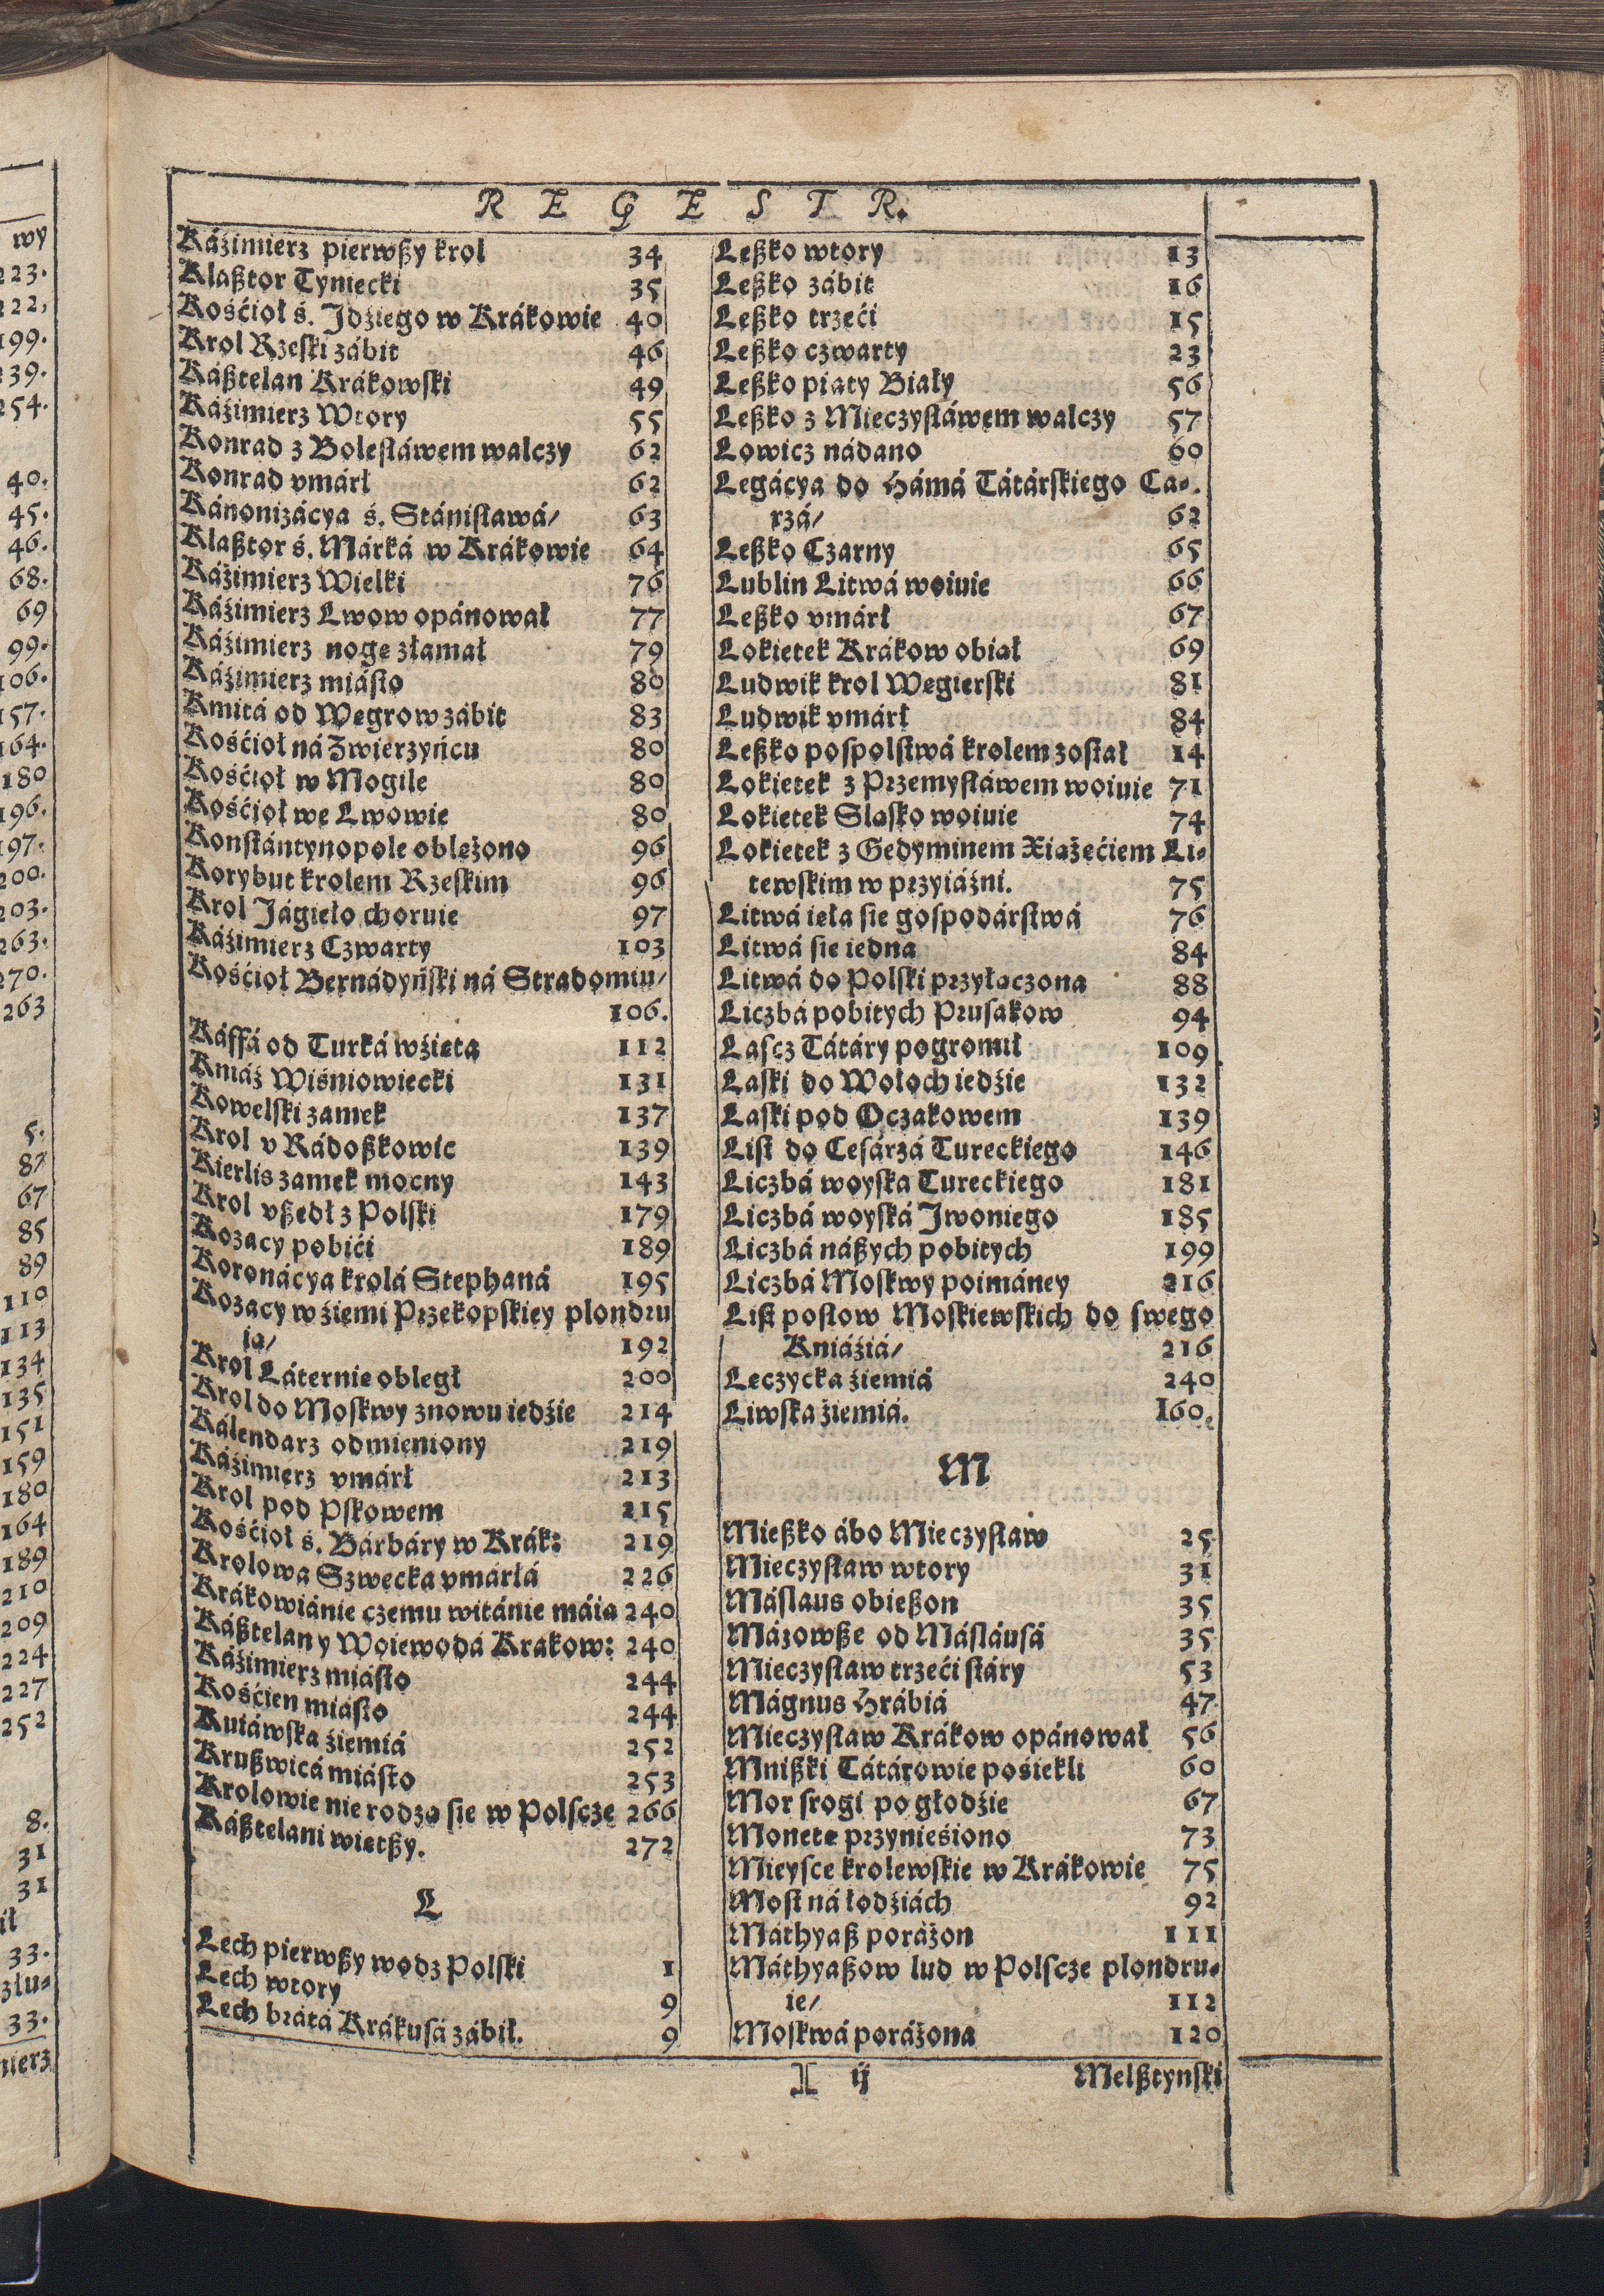 REGESTR.
Káźimierz pierwßy krol 34
Klaßtor Tyniecki 35
Kośćioł ś. Jdźiego w Krákowie 40
Krol Rzeſki zábit 46
Káßtelan Krákowſki 49
Káźimierz Wtory 55
Konrad z Boleſláwem walczy 62
Konrad vmárł 62
Kánonizácya ś. Stániſlawá/ 63
Klaßtor ś. Márká w Krákowie 64
Káźimierz Wielki 76
Káźimierz Lwow opánował 77
Káźimierz nogę złamał 79
Káźimierz miáſto 80
Kmitá od Węgrow zábit 83
Kośćioł ná Zwierzyńcu 80
Kośćioł w Mogile 80
Kośćioł we Lwowie 80
Konſtántynopole oblężono 96
Korybut krolem Rzeſkim 96
Krol Jágieło choruie 97
Káźimierz Czwarty 103
Kośćioł Bernádyńſki ná Stradomiu/
106.
Káffá od Turká wźięta 112
Kniáź Wiśniowiecki 131
Kowelſki zamek 137
Krol v Rádoßkowic 139
Kierlis zamek mocny 143
Krol vßedł z Polſki 179
Kozacy pobići 189
Koronácya krolá Stephaná 195
Kozacy w źiemi Przekopſkiey plondru
ią/ 192
Krol Láternię obległ 200
Krol do Moſkwy znowu iedźie 214
Kálendarz odmieniony 219
Káźimierz vmárł 213
Krol pod Pſkowem 215
Kośćioł ś. Bárbáry w Krák: 219
Krolowa Szwecka vmárłá 226
Krákowiánie czemu witánie máią 240
Káßtelan y Woiewodá Krakow: 240
Káźimierz miáſto 244
Kośćien miáſto 244
Kuiáwſka źiemiá 252
Krußwicá miáſto 253
Krolowie nie rodzą ſie w Polſcze 266
Káßtelani więtßy. 272
L
Lech pierwßy wodz Polſki 1
Lech wtory 9
Lech brátá Krákuſá zábił. 9
Leßko wtory 13
Leßko zábit 16
Leßko trzeći 15
Leßko czwarty 23
Leßko piąty Biały 56
Leßko z Mieczyſláwem walczy 57
Lowicz nádano 60
Legácya do Hámá Tátárſkiego Ca-
rzá/ 62
Leßko Czarny 65
Lublin Litwá woiuie 66
Leßko vmárł 67
Lokietek Krákow obiął 69
Ludwik krol Węgierſki 81
Ludwik vmárł 84
Leßko poſpolſtwá krolem zoſtał 14
Lokietek z Przemyſláwem woiuie 71
Lokietek Sląſko woiuie 74
Lokietek z Gedyminem Xiążęćiem Li-
tewſkim w przyiáźni. 75
Litwá ięła ſie goſpodárſtwá 76
Litwá ſie iedna 84
Litwá do Polſki przyłączona 88
Liczbá pobitych Pruſakow 94
Laſcz Tátáry pogromił 109
Laſki do Wołoch iedźie 132
Laſki pod Oczakowem 139
Liſt do Ceſárzá Tureckiego 146
Liczbá woyſka Tureckiego 181
Liczbá woyſká Jwoniego 185
Liczbá náßych pobitych 199
Liczbá Moſkwy poimáney 216
Liſt poſlow Moſkiewſkich do ſwego
Kniáźiá/ 216
Lęczycka źiemiá 240
Liwſka źiemiá. 160.
M
Mießko ábo Mieczyſław 25
Mieczyſław wtory 31
Máſlaus obießon 35
Mázowße od Máſláuſá 35
Mieczyſław trzeći ſtáry 53
Mágnus Hrábiá 47
Mieczyſław Krákow opánował 56
Mnißki Tátárowie pośiekli 60
Mor ſrogi po głodźie 67
Monetę przynieśiono 73
Mieyſce krolewſkie w Krákowie 75
Moſt ná łodźiách 92
Máthyaß poráżon 111
Máthyaßow lud w Polſcze plondru-
ie/ 112
Moſkwá poráżona 120
I ij Melßtynſki
wy
223.
222,
199.
239.
254.
40.
45.
46.
68.
69
99.
106.
157.
164.
180
196.
197.
200.
203.
263.
270.
263
5.
87
67
85
89
110
113
134
135
151
159
180
164
189
210
209
224
227
252
8.
31
31
ił
33.
złu-
33.
mierz